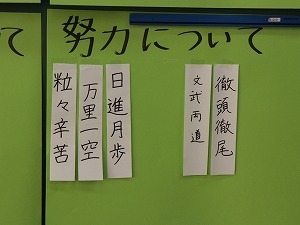 努力について
徹頭徹尾
文武両道
日進月歩
万里一空
粒々辛苦
て